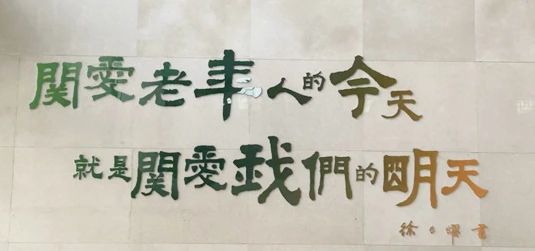 関愛老年人的今天
就是関愛我們的明天
徐 書